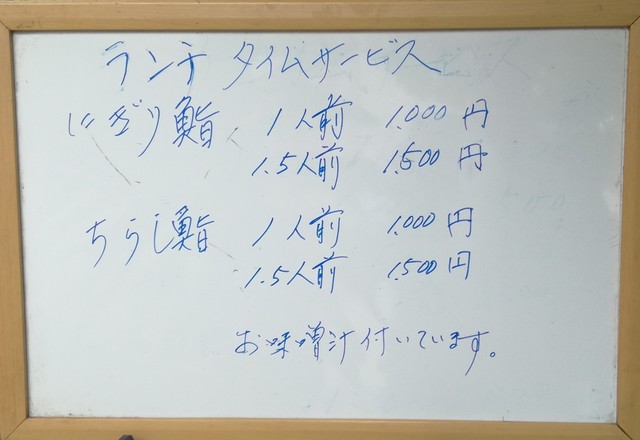 ランチ タイムサービス
にぎり鮨 1人前 1.000円
1.5人前 1.500円
ちらし鮨 1人前 1.000円
1.5人前 1.500円
お味噌汁付いています。